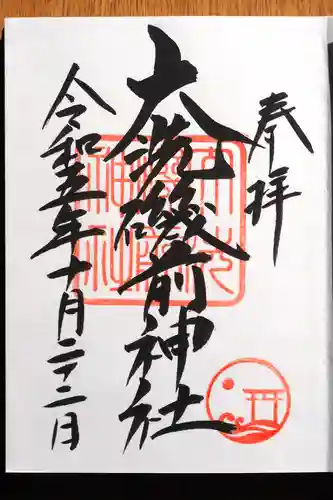 奉拝
大洗磯前神社
令和五年十月二十二日